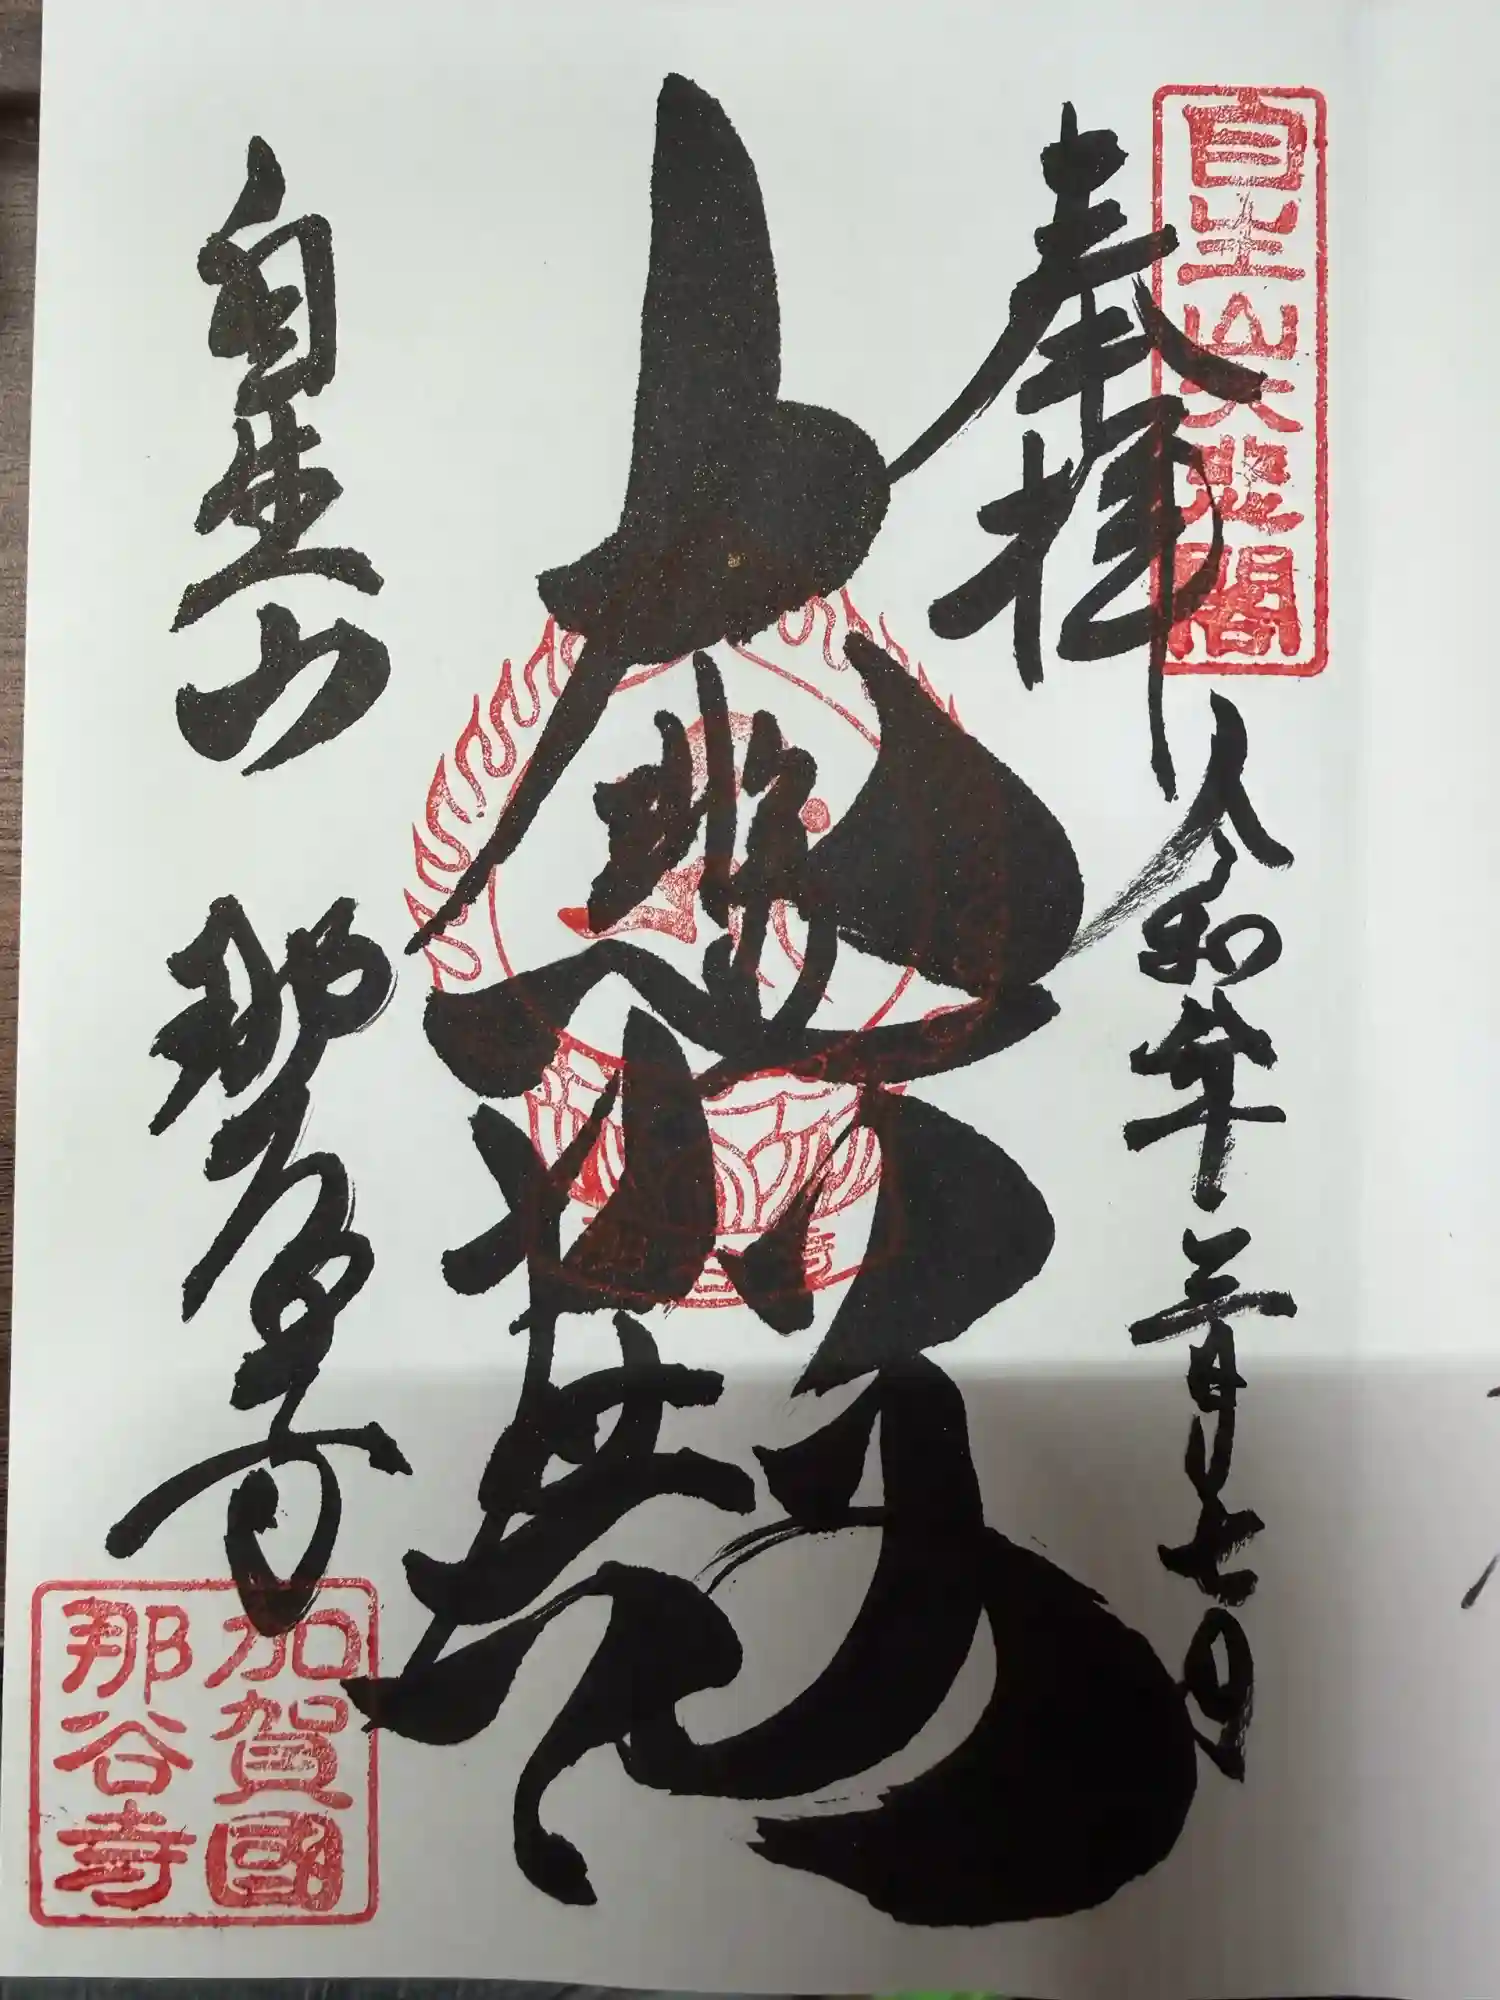 自生山大悲閣
奉拝
令和年三月七日
大悲殿
自生山 那谷寺
加賀國
那谷寺